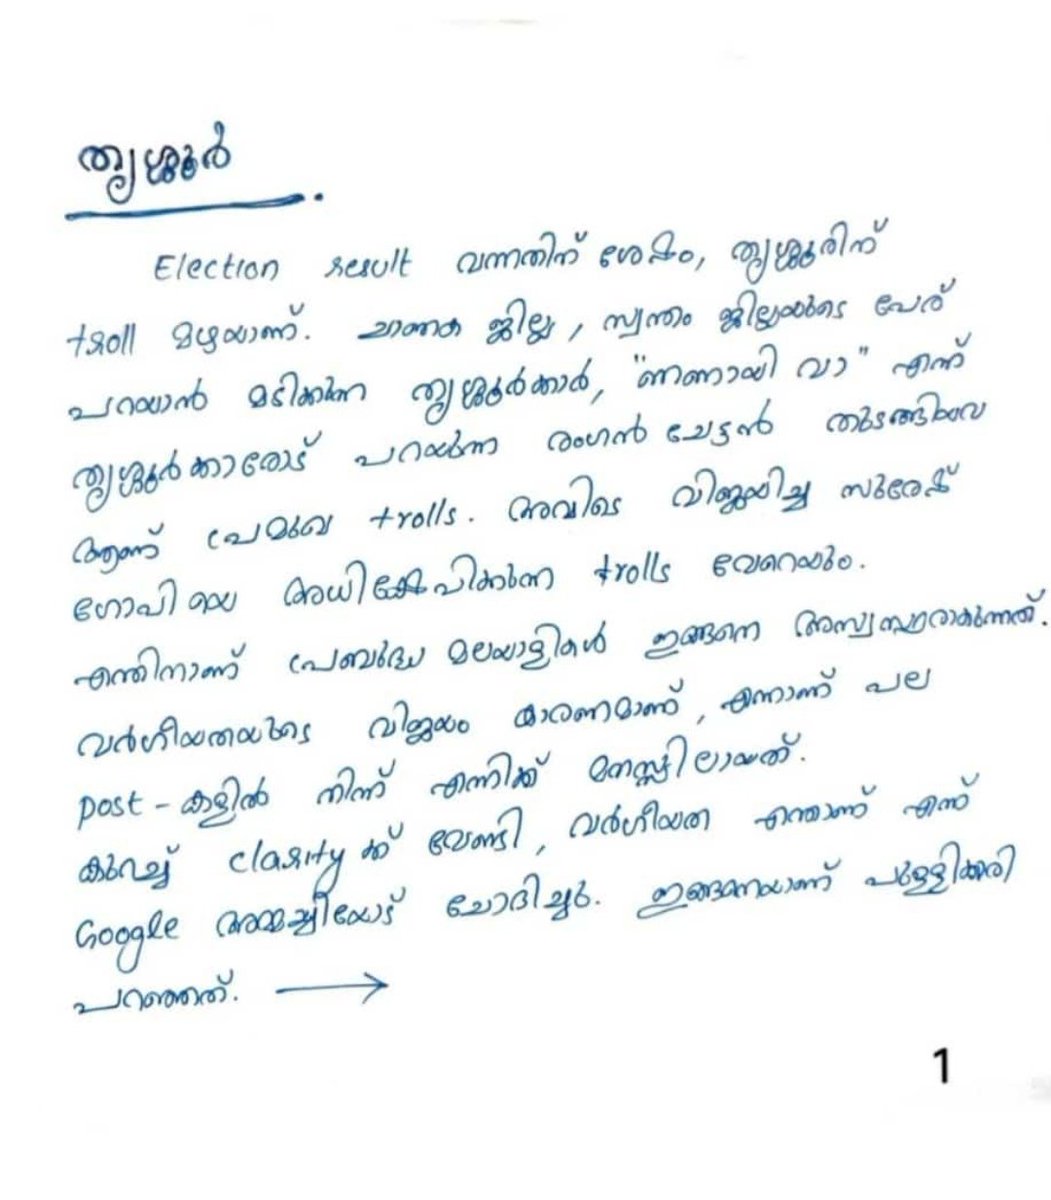 തൃശ്ശൂർ
Election result വന്നതിന് ശേഷം, തൃശ്ശൂരിന്
troll മഴയാണ്. ചാണക ജില്ല, സ്വന്തം ജില്ലയുടെ പേര്
പറയാൻ മടിക്കുന്ന തൃശ്ശൂർക്കാർ, "ണണായി വാ" എന്ന്
തൃശ്ശൂർക്കാരോട് പറയുന്ന രംഗൻ ചേട്ടൻ തുടങ്ങിയവ
ആണ് പ്രമുഖ trolls. അവിടെ വിജയിച്ച സുരേഷ്
ഗോപിയെ അധിക്ഷേപിക്കുന്ന trolls വേറെയും.
എന്തിനാണ് പ്രബുദ്ധ മലയാളികൾ ഇങ്ങനെ അസ്വസ്ഥരാകുന്നത്.
വർഗീയതയുടെ വിജയം കാരണമാണ്, എന്നാണ് പല
post-കളിൽ നിന്ന് എനിക്ക് മനസ്സിലായത്.
കുറച്ച് clarity ക്ക് വേണ്ടി, വർഗീയത എന്താണ് എന്ന്
Google അമ്മച്ചിയോട് ചോദിച്ചു. ഇങ്ങനെയാണ് പുള്ളിക്കാരി
പറഞ്ഞത്. →
1